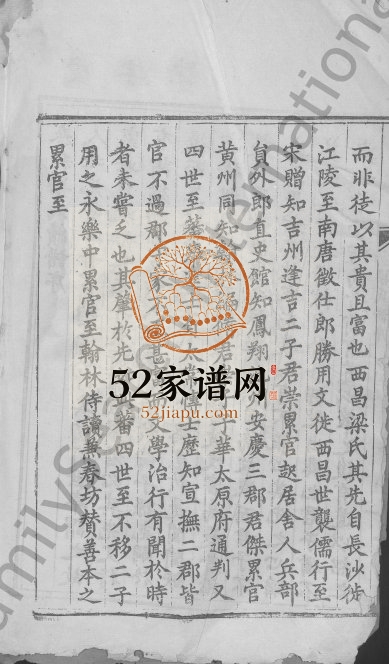 而非徒以其貴且富也西昌梁氏其先自長沙徙
江陵至南唐徵仕郎勝用文徙西昌世襲儒行至
宋贈知吉州逢吉二子君崇累官起居舍人兵部
員外郎直史館知鳳翔 安慶三郡君傑累官
黄州同知 十華太原府通判又
四世至 士歷知宣撫二郡皆
官不過郡 文學治行有聞於時
者未嘗乏也其肇於先 蕃四世至不移二子
用之永樂中累官至翰林侍讀兼春坊賛善本之
累官至
52家谱网
52jiapu.com
FamilySearch International